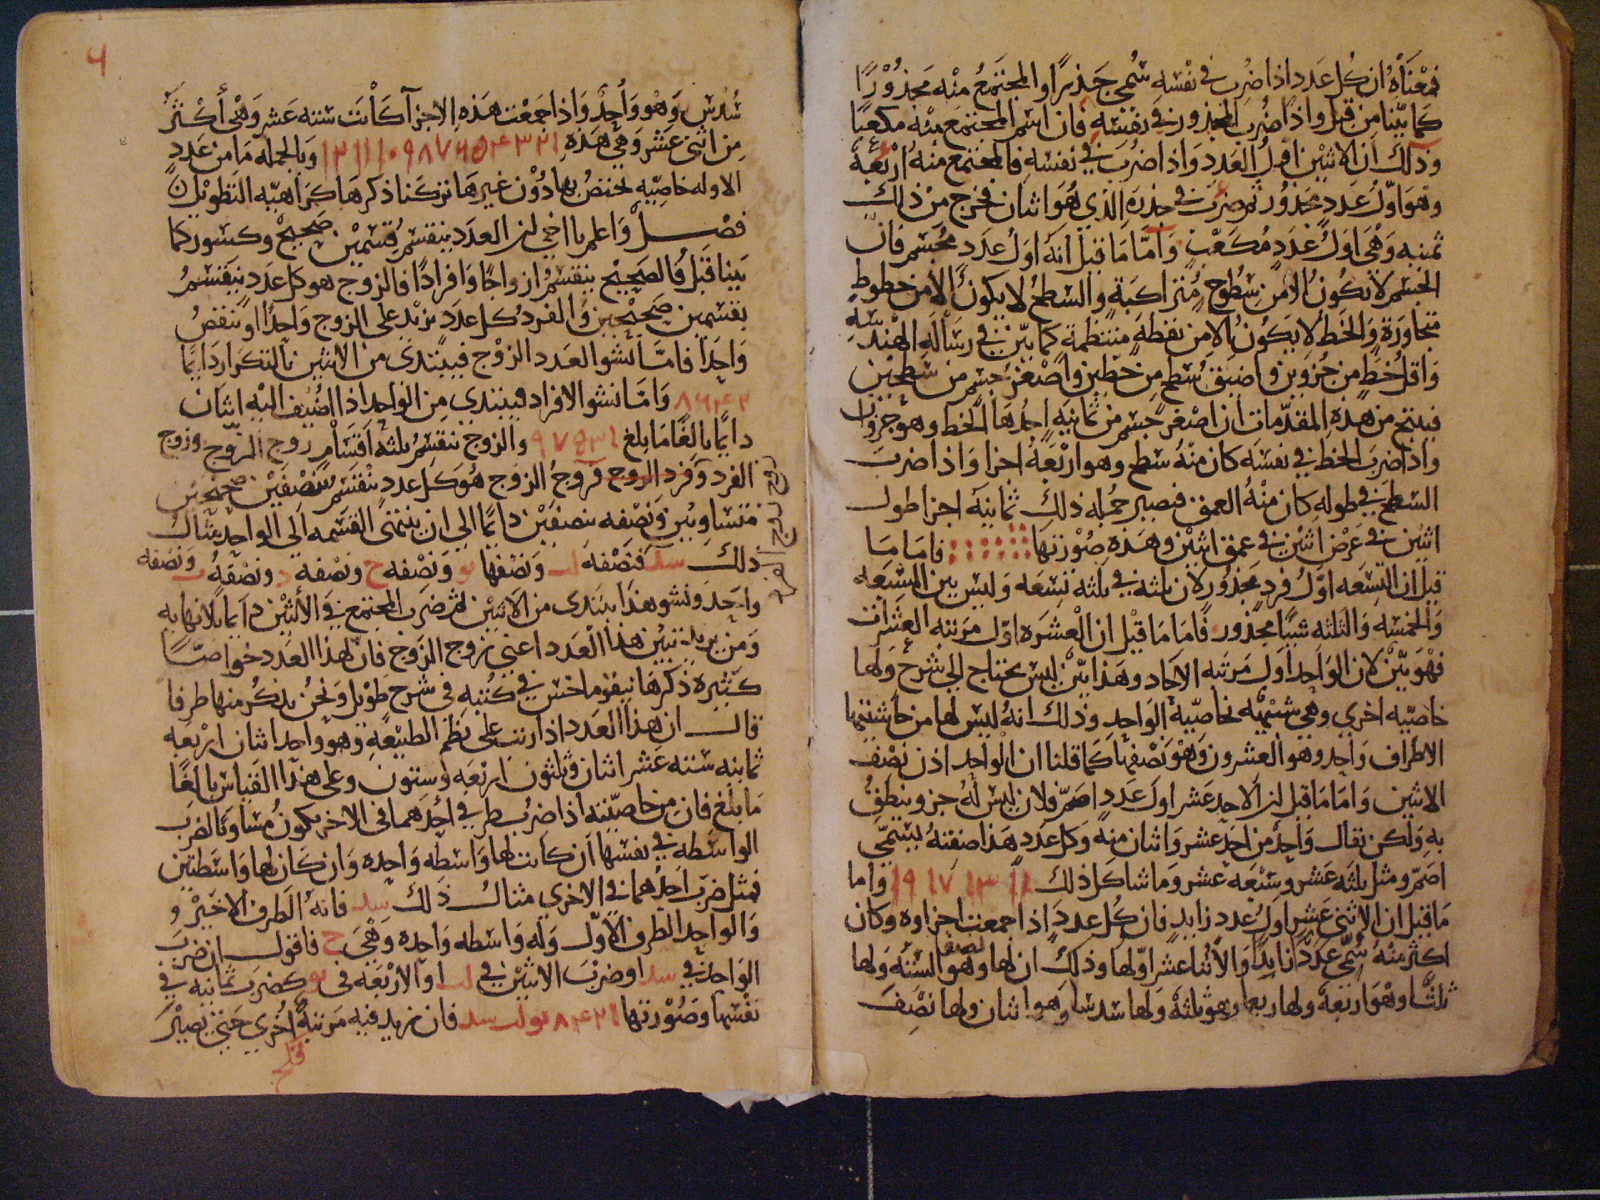 فمعناه ان كل عدد اذا ضرب في نفسه سمي جذرا والمجتمع منه مجذورا
كما بينا من قبل واذا ضرب المجذور في نفسه فان اسم المجتمع منه مكعبا
وذلك ان الاثنين اول العدد واذا ضرب في نفسه فالمجتمع منه اربعة
وهو اول عدد مجذور ثم ضرب في جذره الذي هو اثنان فخرج من ذلك
ثمنيه وهي اول عدد مكعب واما ما قيل انه اول عدد مجسم فان
الجسم لا تكون الا من سطوح متراكبة والسطح لا يكون الا من خطوط
متجاورة والخط لا يكون الا من نقطة منتظمة كما بين في رسالة الهندسه
واقل خط من جزوين واضيق سطح من خطين واصغر جسم من سطحين
فينتج من هذه المقدمات ان اصغر جسم من ثمانيه احدها الخط وهو جزوان
واذا ضرب الخط في نفسه كان منه سطح وهو اربعة اجزا واذا ضرب
السطح في طوله كان منه العمق فيصير جمله ذلك ثمانية اجزا طول
اثنين في عرض اثنين في عمق اثنين وهذه صورتها فاما ما
قيل ان التسعه اول فرد مجذور لان ثلثه في ثلثه تسعه وليس بين السبعه
والخمسه والثلثه شيا مجذور فاما ما قيل ان العشره اول مرتبه العشرات
فهو بين لان الواحد اول مرتبه الاحاد وهذا بين ليس يحتاج الى شرح ولها
خاصيه اخرى وهي شبيهه بخاصية الواحد وذلك انه ليس لها من حاشيتها
الاطراف واحد وهو العشرون وهو نصفها كما قلنا ان الواحد اذن نصف
الاثنين واما ما قيل ان الاحد عشر اول عدد اصم فلان ليس له جزو ينطق
به ولكن يقال واحد من احد عشر واثنان منه وكل عدد هذا صفته يسمى
اصم ومثل ثلثه عشر وسبعه عشر وما شاكل ذلك ١١ ١٣ ١٧ ١٩ واما
ما قيل ان الاثني عشر اول عدد زايد فان كل عدد اذا جمعت اجزاوه وكان
اكثر منه سمي عددا زايدا والاثنا عشر اولها وذلك ان لها نصف وهو السته ولها
ثلثا وهو اربعة ولها ربعا وهو ثلثة ولها سدسا وهو اثنان ولها نصف
٦
سدس وهو واحد واذا جمعت هذه الاجزا كانت سته عشر وهي أكثر
من اثنى عشر وهي هذه ١ ٢ ٣ ٤ ٥ ٦ ٧ ٨ ٩ ١٠ ١١ ١٢ وبالجمله ما من عدد
الا وله خاصيه تختص بها دون غيرها تركنا ذكرها كراهيه التطويل
فصل واعلم يا اخي ان العدد ينقسم قسمين صحيح وكسور كما
بينا قبل فالصحيح ينقسم ازواجا وافرادا فالزوج هو كل عدد ينقسم
بقسمين صحيحين والفرد كل عدد يزيد على الزوج واحدا او ينقص
واحدا فاما نشو العدد الزوج فيبتدى من الاثنين بالتكرار دايما
٢ ٤ ٦ ٨ واما نشو الافراد فيبتدي من الواحد اذا اضيف اليه اثنان
دايما بالغا ما بلغ ١ ٣ ٥ ٧ ٩ والزوج ينقسم ثلثه اقسام زوج الزوج وزوج
الفرد وفرد الزوج فزوج الزوج هو كل عدد ينقسم بنصفين صحيحين
متساويين ونصفه بنصفين دايما الى ان ينتهى القسمه الى الواحد مثال
ذلك سد فنصفه لب ونصفها يو ونصفه ح ونصفه د ونصفه ب ونصفه
واحد ونشو هذا يبتدى من الاثنين ثم ضرب المجتمع في الاثنين دايما بلا نهايه
ومن يريد تبيين هذا العدد اعني زوج الزوج فان لهذا العدد خواصا
كثيرة ذكرها نيقوماخس في كتبه في شرح طويل ونحن نذكر منها طرفا
قال ان هذا العدد اذا رتب على نظم الطبيعة وهو واحد اثنان اربعه
ثمانيه سته عشر اثنان وثلثون اربعه وستون وعلى هذا القياس بالغا
ما بلغ فان من خاصيته اذا ضرب طرفي احدهما في الاخر يكون مساويا لضرب
الواسطه في نفسها ان كانت لها واسطه واحده وان كان لها واسطتين
فمثل ضرب احدهما في الاخرى مثال ذلك سد فانه الطرف الاخير و
والواحد الطرف الاول وله واسطه واحده وهي ح فاقول ان ضرب
الواحد في سد او ضرب الاثنين في لب او الاربعه في يو كضرب ثمانيه في
نفسها وصورتها ١ ٢ ٤ ٨ يو لب سد فان نزيد فيه مرتبه اخرى حتى يصير